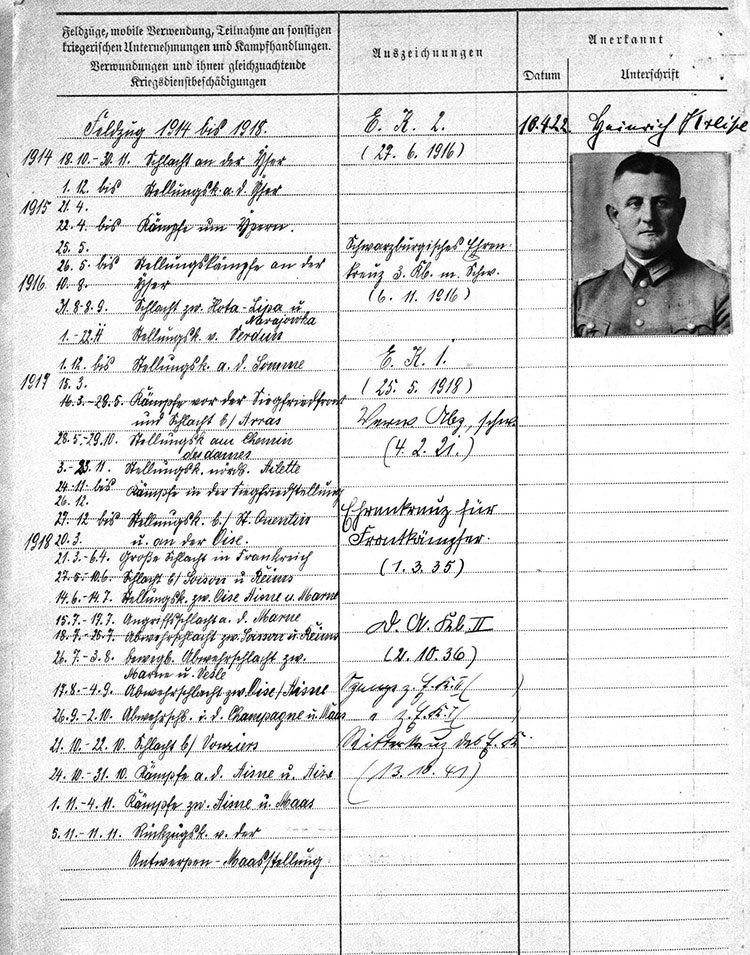 Feldzüge, mobile Verwendung, Teilnahme an sonstigen
kriegerischen Unternehmungen und Kampfhandlungen.
Verwundungen und ihnen gleichzuachtende
Kriegsdienstbeschädigungen
Auszeichnungen
Anerkannt
Datum
Unterschrift
Feldzug 1914 bis 1918.
1914 18.10.-30.11. Schlacht an der Yser
1.12. bis Stellungsk. a. d. Yser
1915 21.4.
22.4. bis Kämpfe um Ypern.
25.5.
26.5. bis Stellungskämpfe an der
1916 10.8. Yser
31.8-8.9. Schlacht zw. Hota-Lipa u
Narajowka
1.-22.11 Stellungsk. v. Verdun
1.12. bis Stellungsk. a. d. Somme
1917 15.3.
16.3.-28.5. Kämpfe vor der Siegfriedfront
und Schlacht b/ Arras
28.5.-29.10. Stellungsk. am Chemin
des dames
3.-23.11. Stellungsk. nördl. Ailette
24.11. bis Kämpfe in der Siegfriedstellung
26.12.
27.12 bis Stellungsk. b./ St. Quentin
1918 20.3. u. an der Oise.
21.3.-6.4. Große Schlacht in Frankreich
27.5.-10.6. Schlacht b/ Soisson u Reims
14.6.-14.7. Stellungsk. zw. Oise Aisne u. Marne
15.7.-17.7. Angriffsschlacht a. d. Marne
18.7.-25.7. Abwehrschlacht zw. Soisson u. Reims
26.7.-3.8. bewegl. Abwehrschlacht zw.
Marne u. Vesle
17.8.-4.9. Abwehrschlacht zw. Oise/Aisne
26.9.-2.10. Abwehrschl. i. d. Champagne u. Maas
21.10.-22.10. Schlacht b/ Vouziers
24.10.-31.10. Kämpfe a. d. Aisne u. Aire
1.11.-4.11. Kämpfe zw. Aisne u. Maas
5.11.-11.11. Rückzugsk. v. der
Antwerpen-Maasstellung
E. K. 2.
(27.6.1916)
Schwarzburgisches Ehren-
kreuz 3. Kl. m. Schw.
(6.11.1916)
E. K. 1.
(25.5.1918)
Verw. Abz., schw.
(4.2.21.)
Ehrenkreuz für
Frontkämpfer.
(1.3.35)
D. A. Kl. II
(2.10.36)
Spange z. E. K. II ( )
" z. E. K. I ( )
Ritterkreuz des E. K.
(13.10.41)
10.4.22. Heinrich